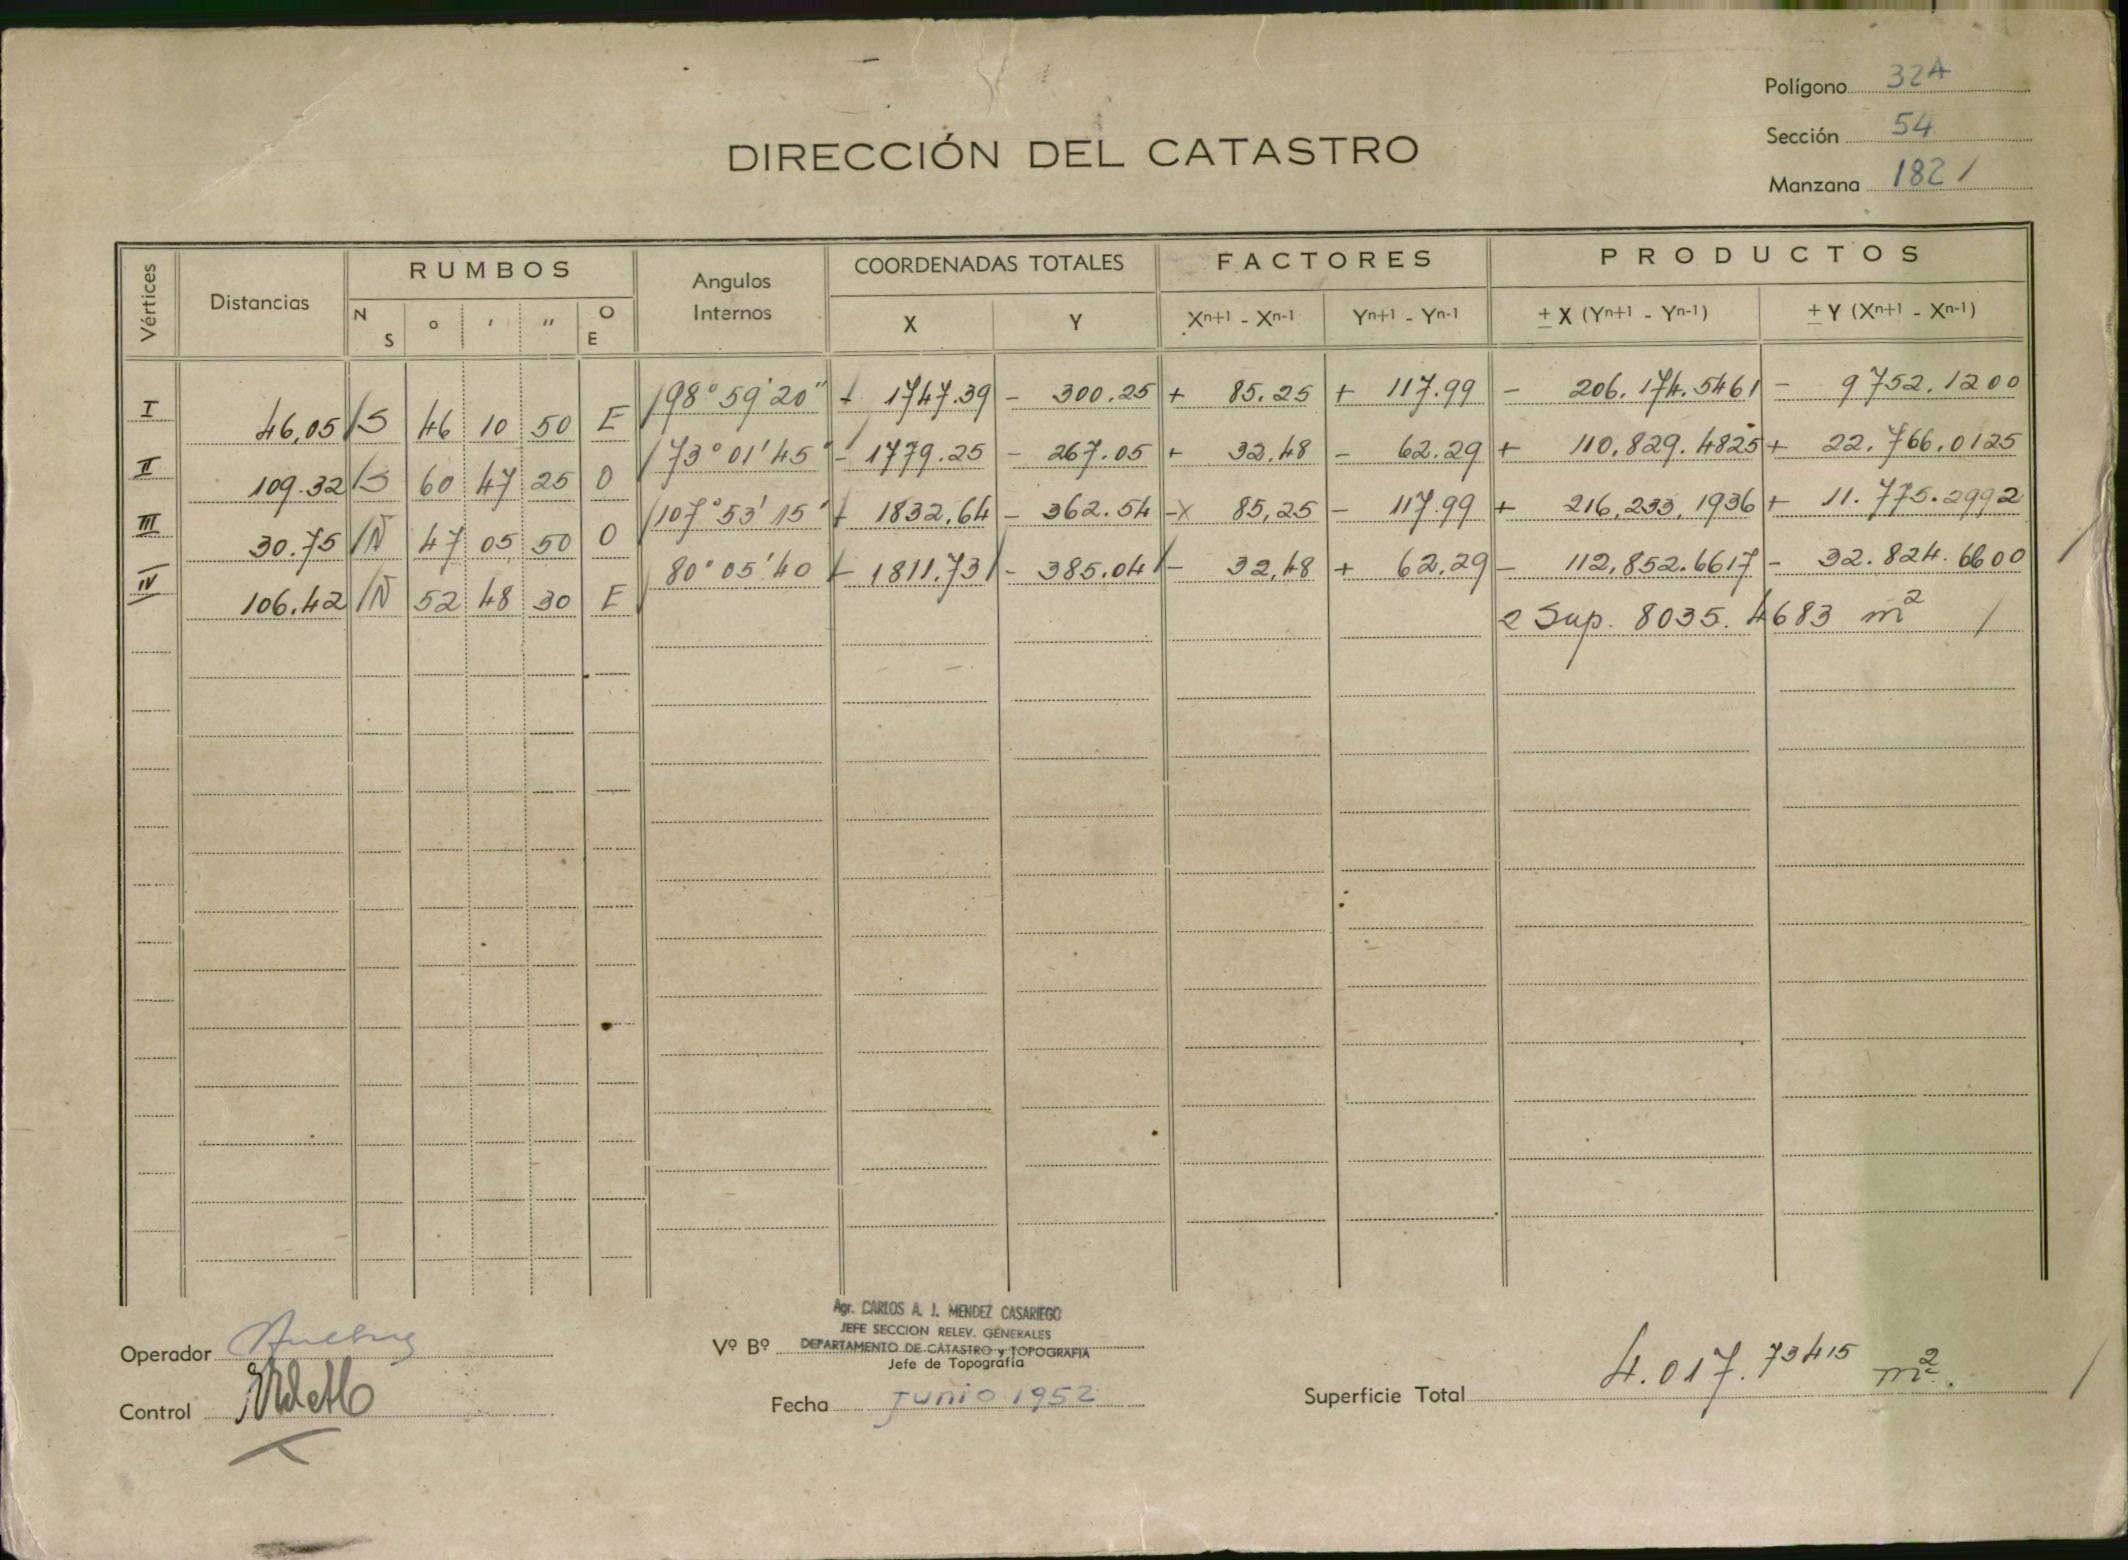 Polígono 32A
Sección 54
Manzana 182 /
DIRECCIÓN DEL CATASTRO
Vértices Distancias RUMBOS Angulos Internos COORDENADAS TOTALES FACTORES PRODUCTOS
N S o ' " O E X Y Xn+1 - Xn-1 Yn+1 - Yn-1 ± X (Yn+1 - Yn-1) ± Y (Xn+1 - Xn-1)
I 46,05 /S 46 10 50 E /98° 59' 20" + 1747.39 - 300.25 + 85.25 + 117.99 - 206.174.5461 - 9752.1200
II 109.32 /S 60 47 25 O /73° 01' 45" - 1779.25 - 267.05 + 32,48 - 62.29 + 110,829.4825 + 22.766,0125
III 30.75 /N 47 05 50 O /107° 53' 15" + 1832,64 - 362.54 -x 85,25 - 117.99 + 216,233,1936 + 11.775.2992
IV 106.42 /N 52 48 30 E /80° 05' 40 + 1811.73 / - 385.04 / - 32,48 + 62.29 - 112,852.6617 - 32.824.6600 /
2 Sup. 8035.4683 m² /
Agr. CARLOS A. J. MENDEZ CASARIEGO
JEFE SECCION RELEV. GENERALES
DEPARTAMENTO DE CATASTRO y TOPOGRAFIA
Operador
Vº Bº
Jefe de Topografía
Control
Fecha junio 1952
Superficie Total 4.017.73415 m². /